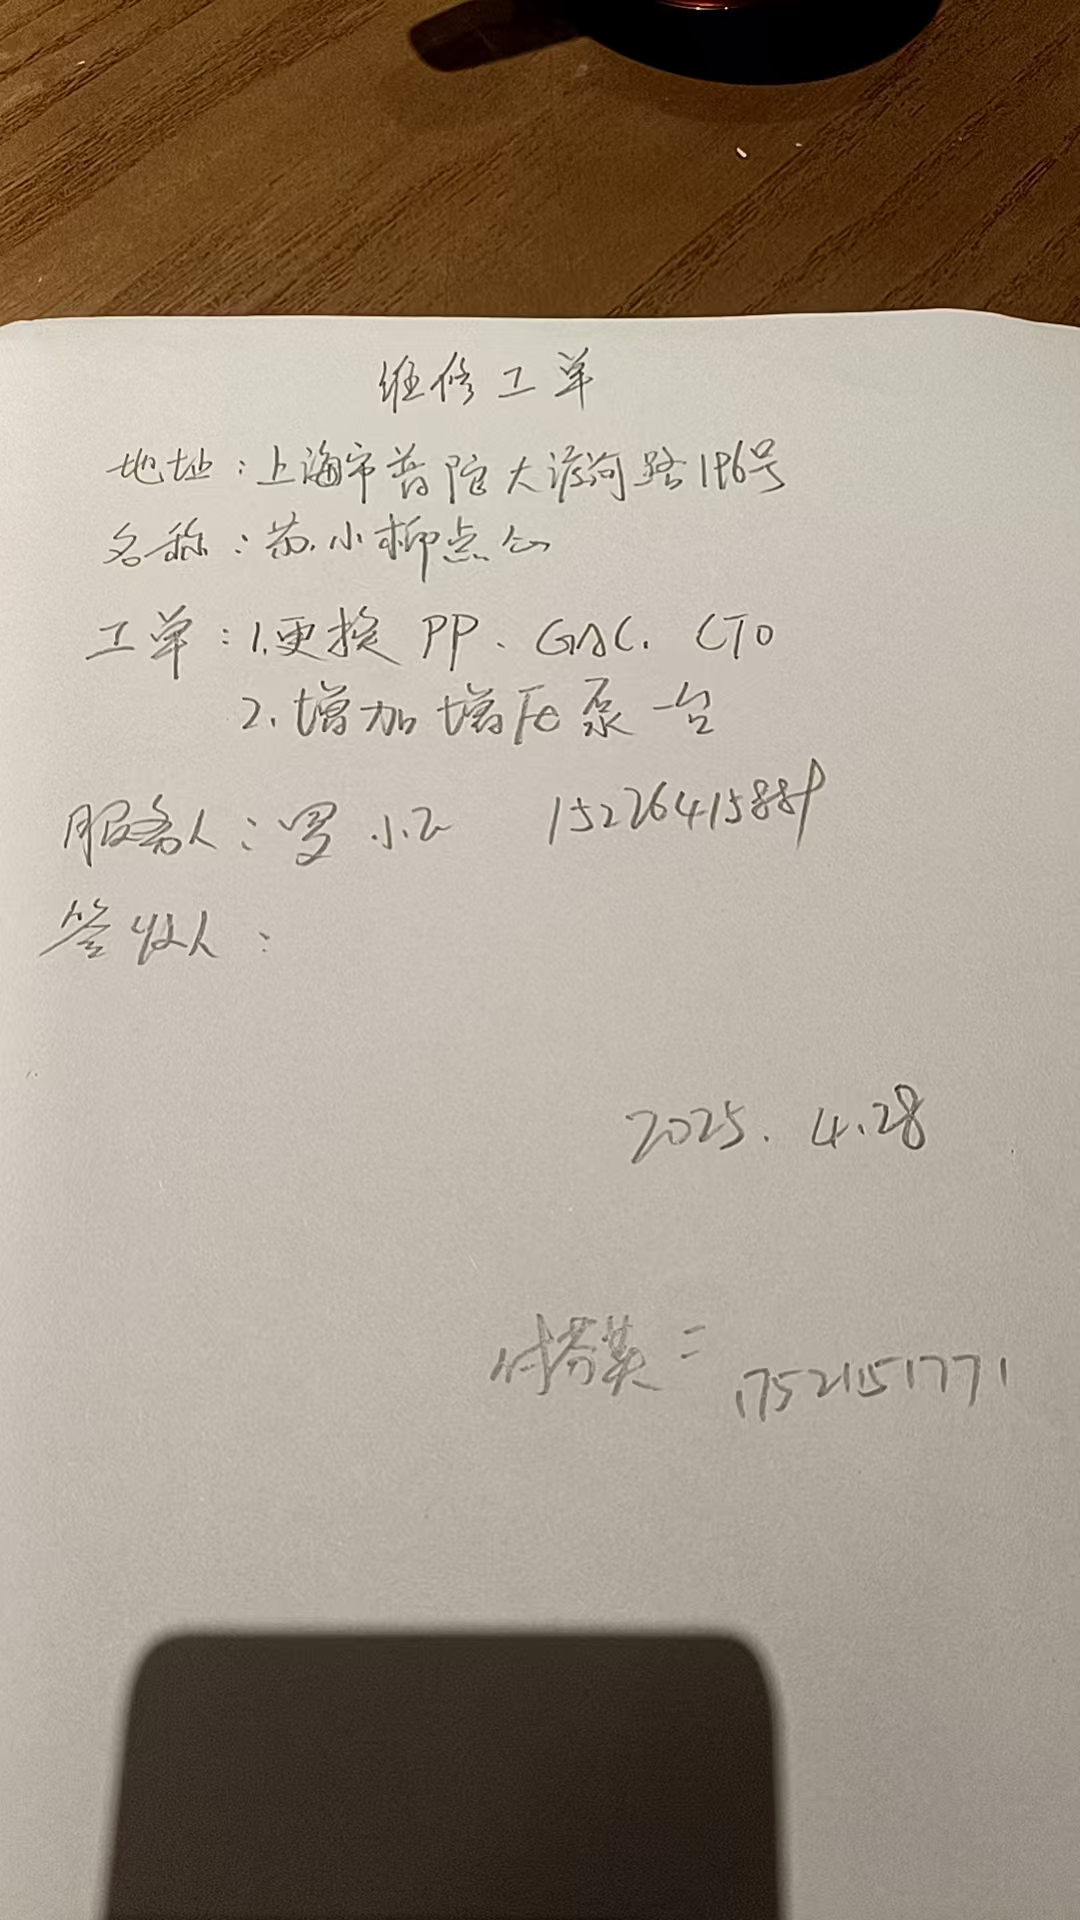 维修工单
地址：上海市普陀大渡河路196号
名称：苏小柳点心
工单：1.更换 PP、GAC、CTO
2.增加增压泵一台
服务人：罗小云 15226415889
签收人：
2025.4.28
付春英＝ 17521151771